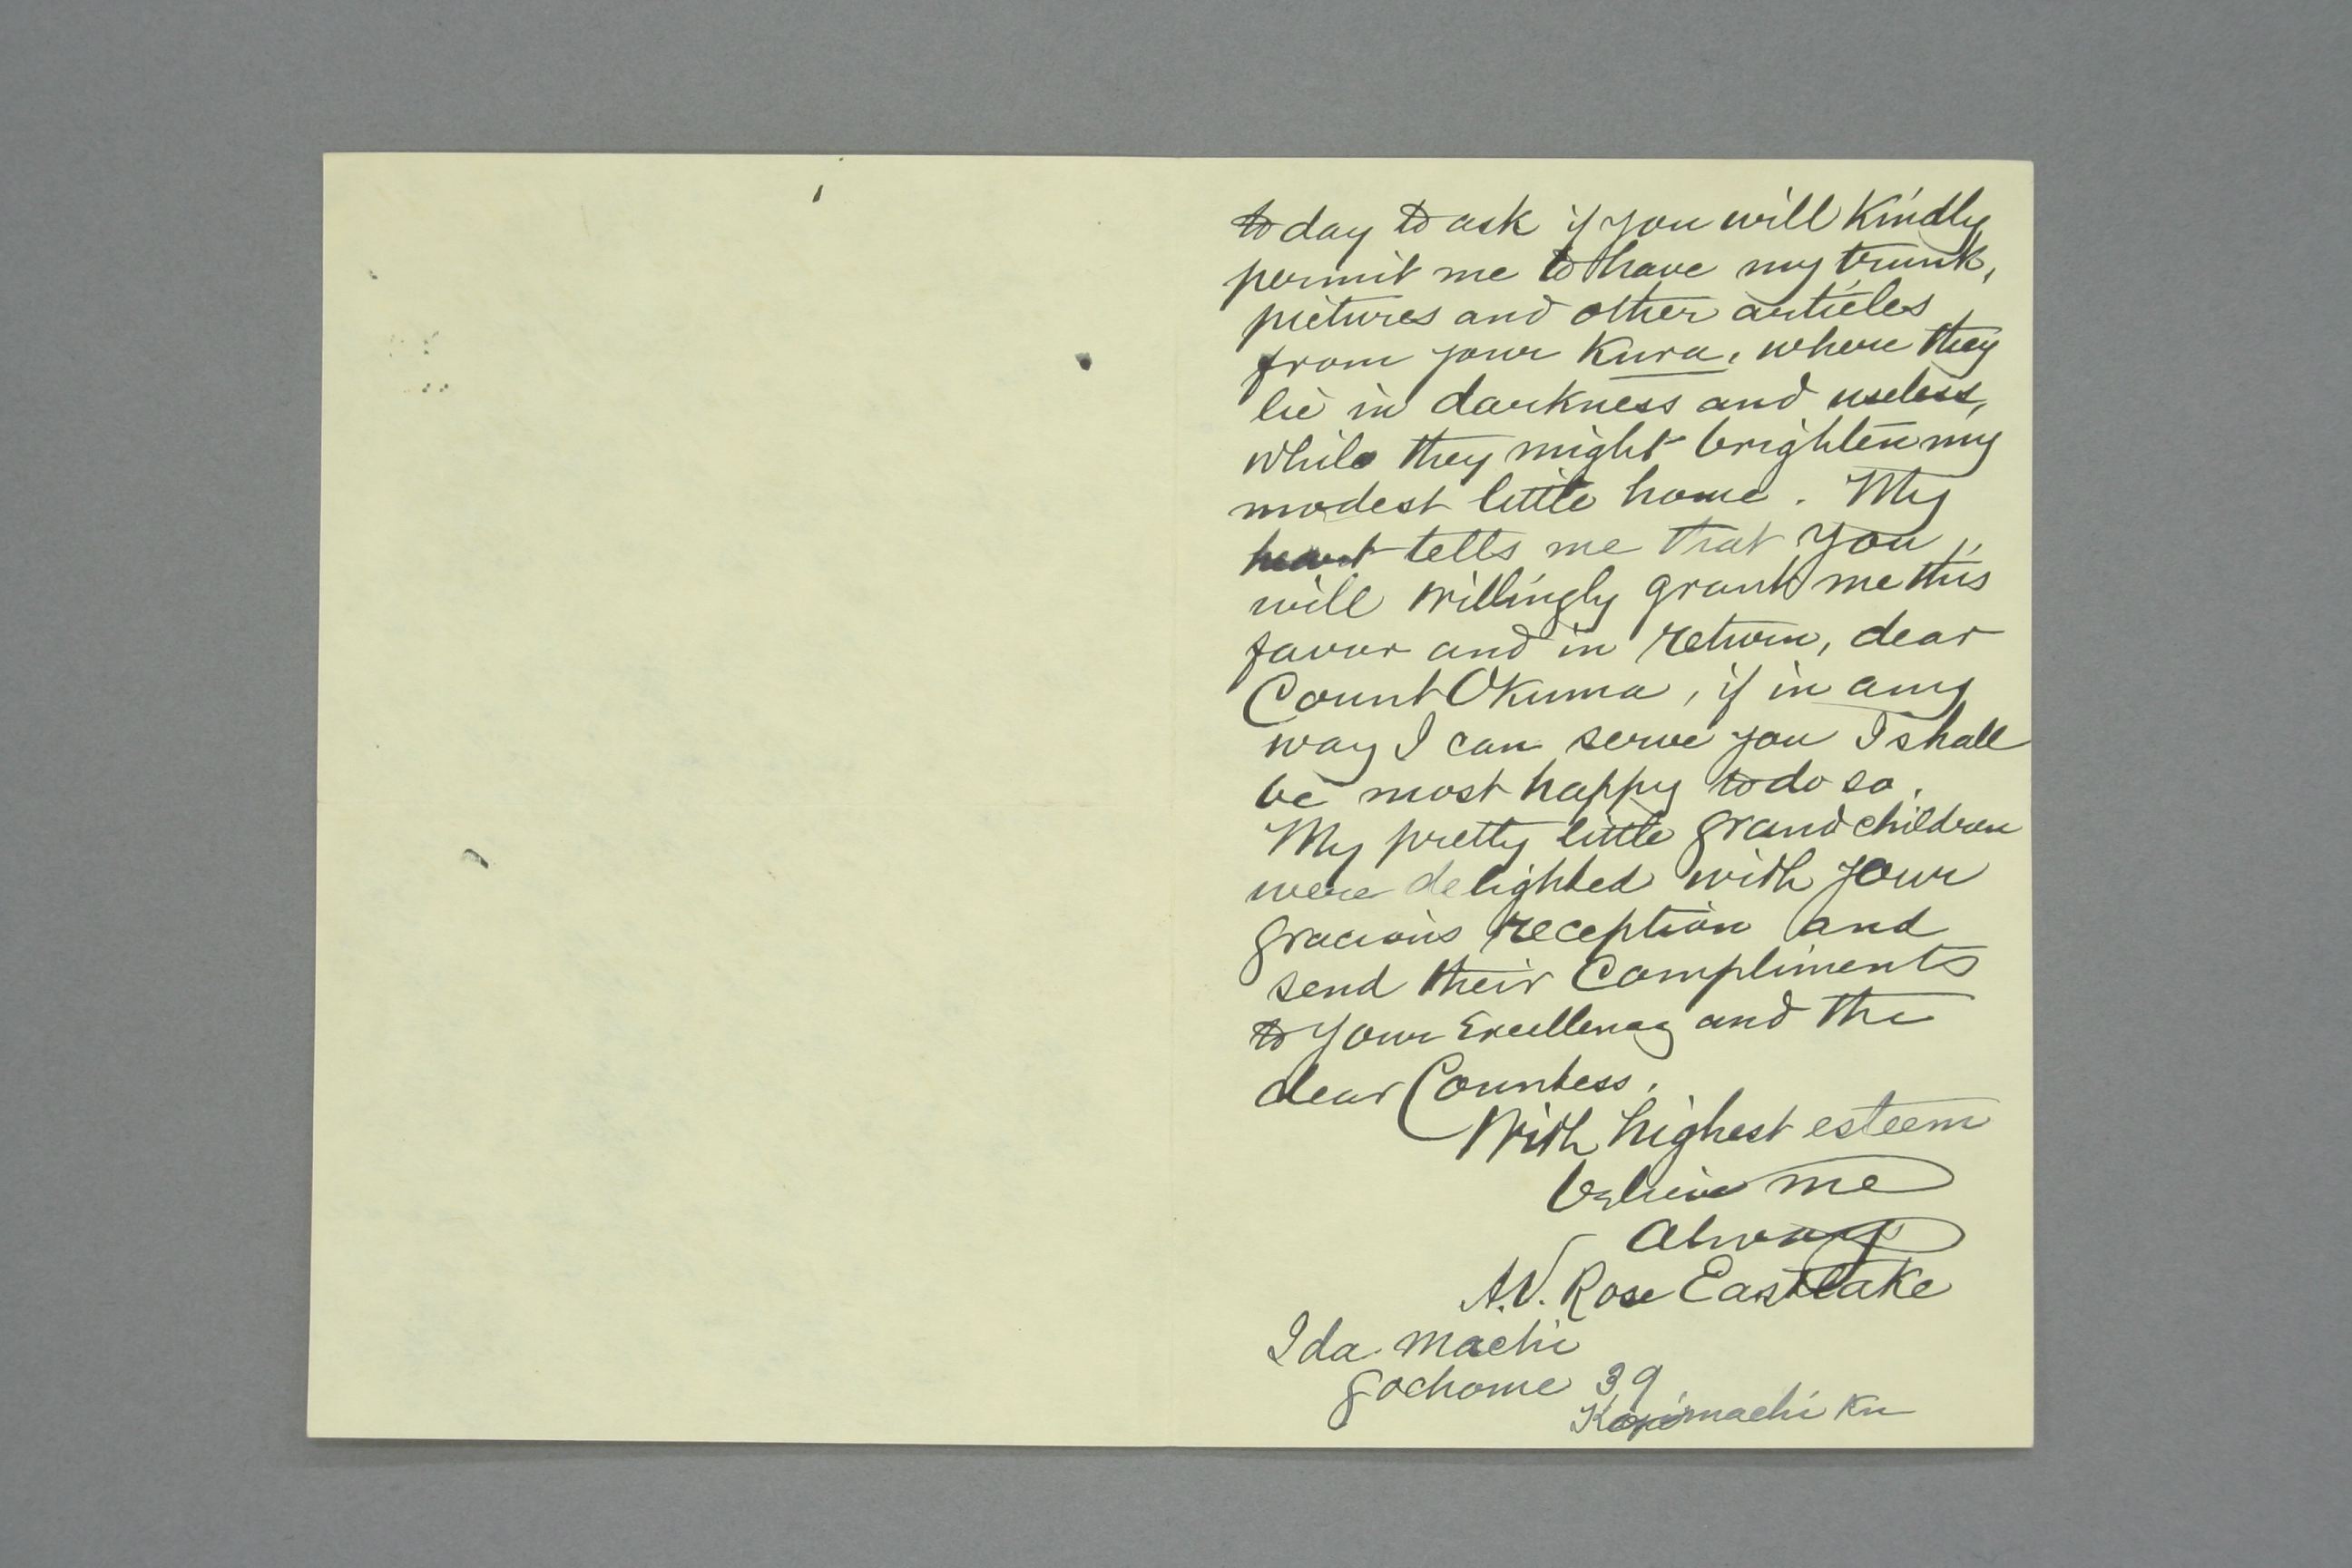 to day to ask if you will Kindly
permit me to have my trunk,
pictures and other articles
from your Kura, where they
lie in darkness and useless,
while they might brighten my
modest little home. My
heart tells me that you
will willingly grant me this
favor and in return, dear
Count Okuma, if in any
way I can serve you I shall
be most happy to do so.
My pretty little grandchildren
were delighted with your
gracious reception and
send their Compliments
to your Excellency and the
dear Countess.
With highest esteem
believe me
always
A.V. Rose Eastlake
Ida machi
gochome 39
Kojimachi Ku